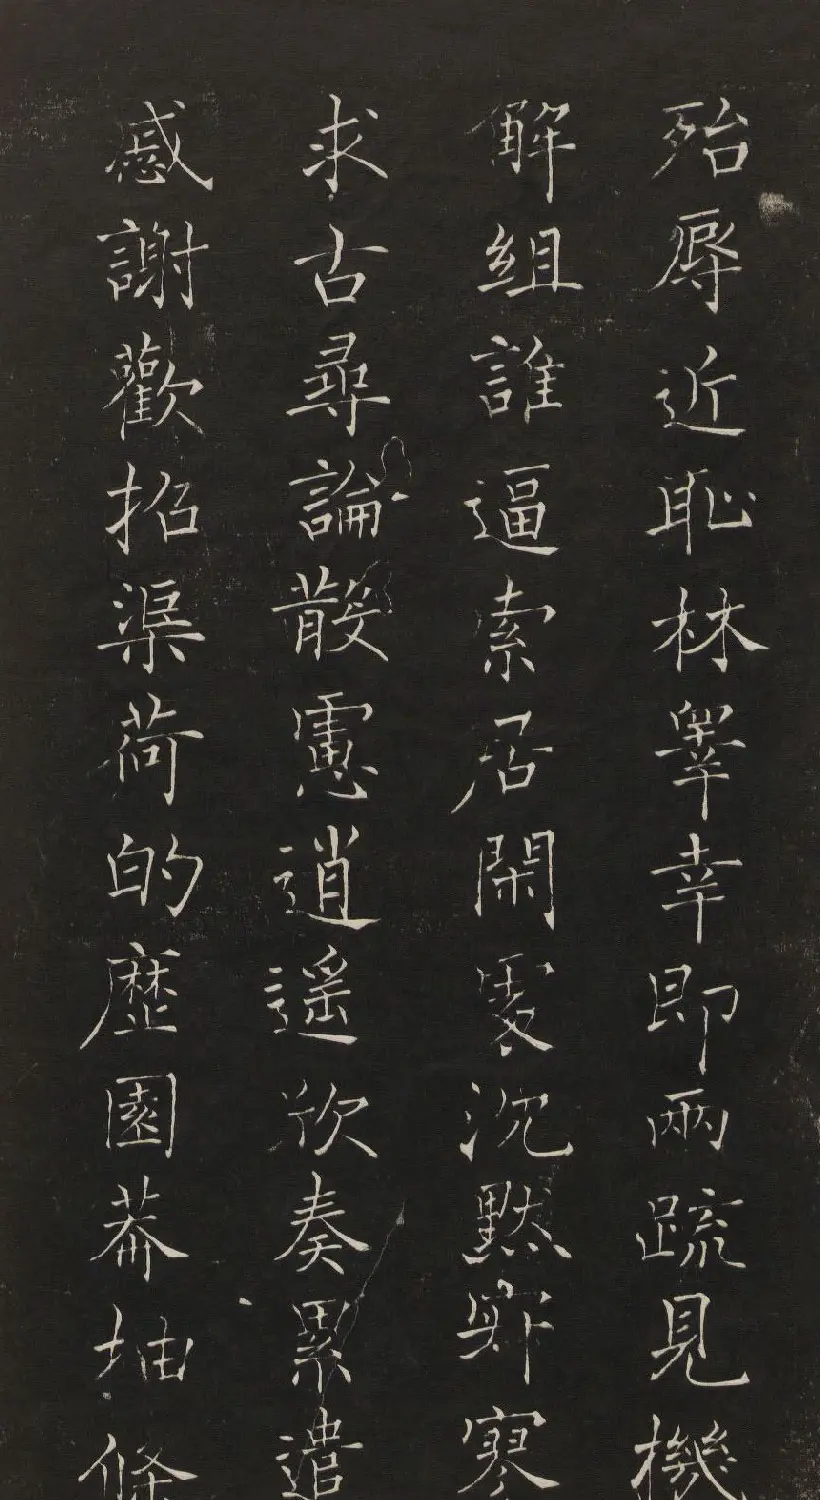 殆辱近恥林睾幸即兩疏見機
解組誰逼索居閑處沈默寂寥
求古尋論散慮逍遥欣奏累遣
慼謝歡招渠荷的歷園莽抽條